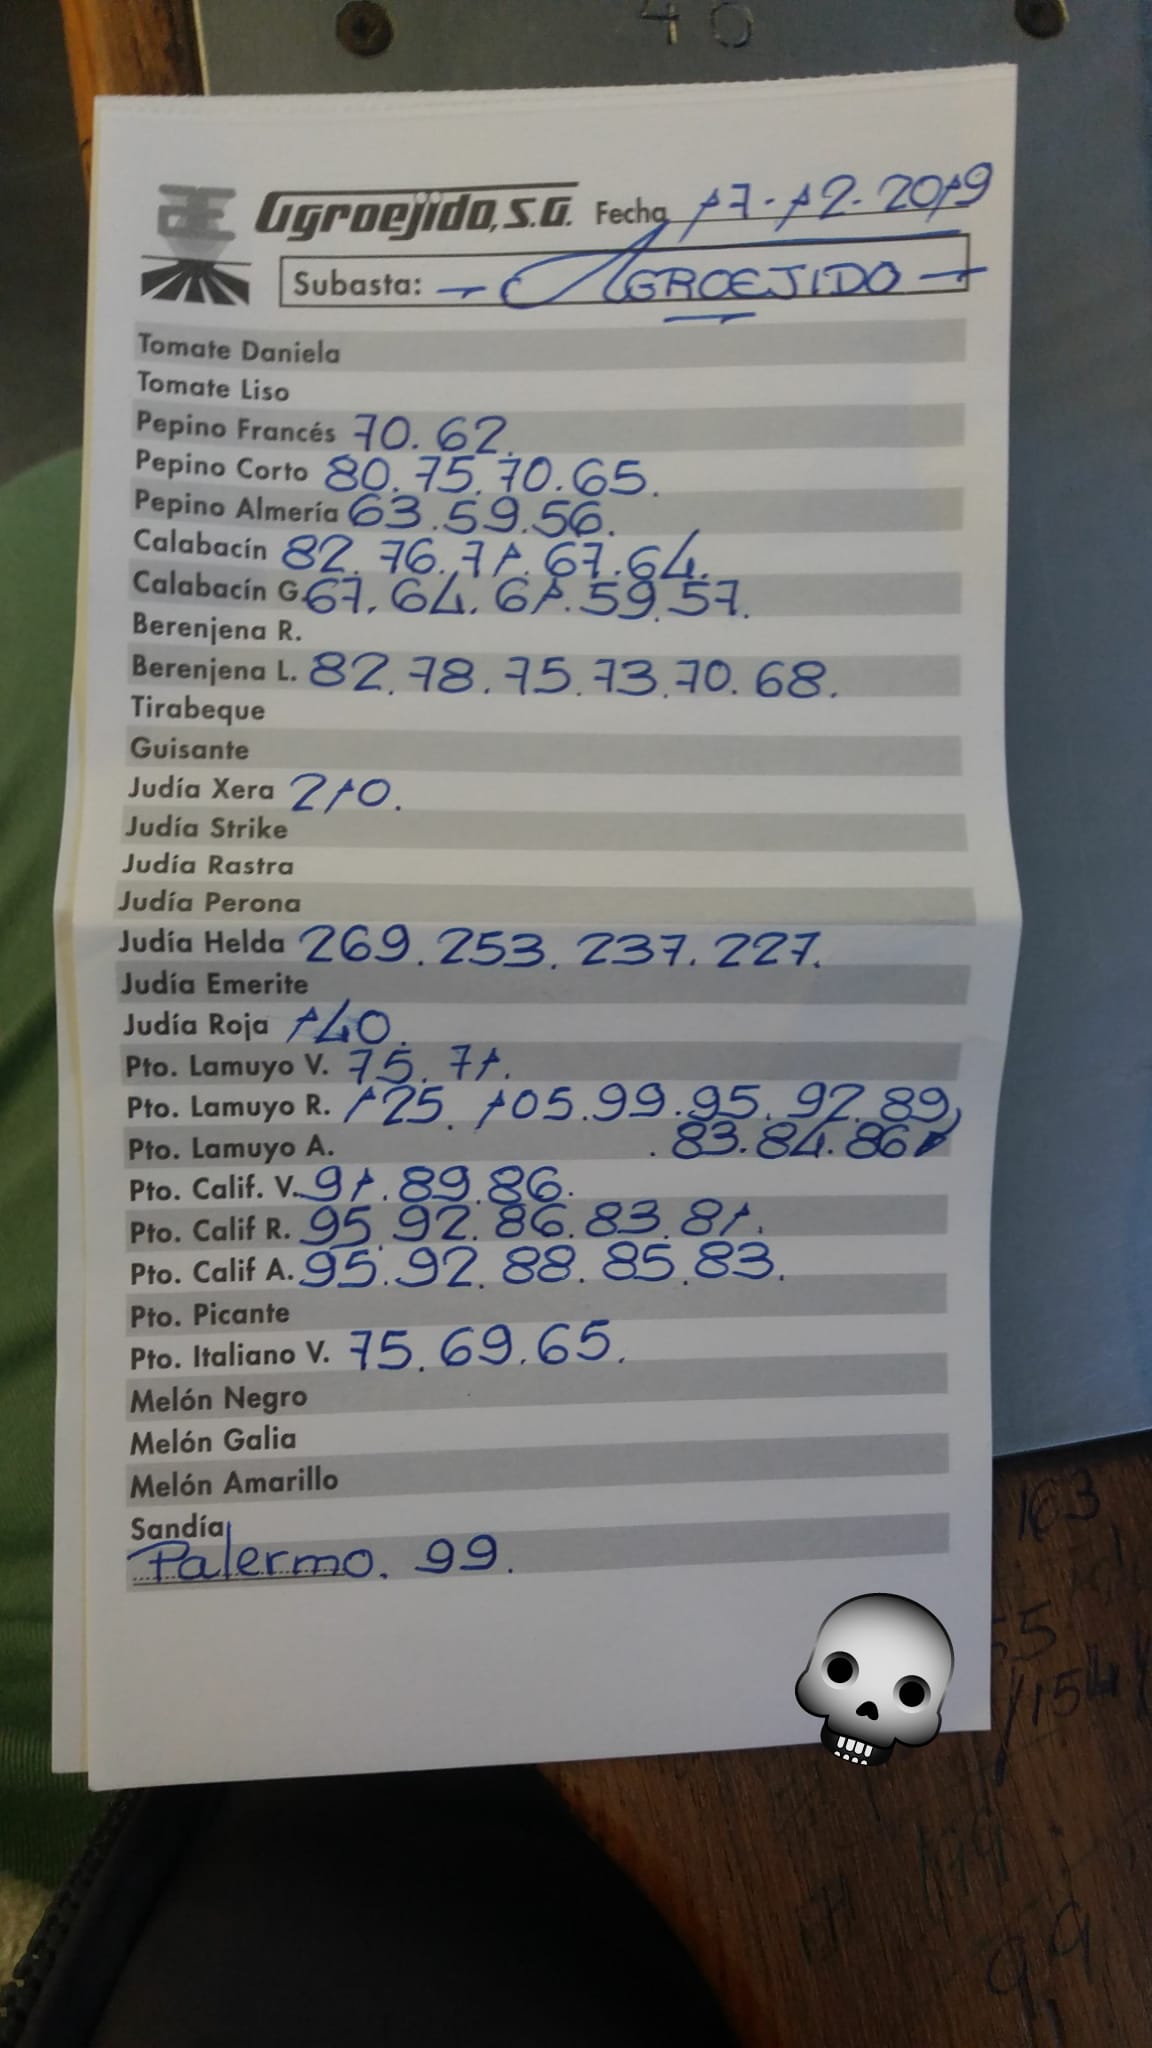 40
Agroejido, S.A. Fecha 17-12-2019
Subasta: - AGROEJIDO -
Tomate Daniela
Tomate Liso
Pepino Francés 70. 62.
Pepino Corto 80. 75. 70. 65.
Pepino Almería 63. 59. 56.
Calabacín 82. 76. 71. 67. 64.
Calabacín G. 67. 64. 61. 59. 57.
Berenjena R.
Berenjena L. 82. 78. 75. 73. 70. 68.
Tirabeque
Guisante
Judía Xera 210.
Judía Strike
Judía Rastra
Judía Perona
Judía Helda 269. 253. 237. 227.
Judía Emerite
Judía Roja 140.
Pto. Lamuyo V. 75. 71.
Pto. Lamuyo R. 125. 105. 99. 95. 92. 89
Pto. Lamuyo A. . 83. 84. 86
Pto. Calif. V. 91. 89. 86.
Pto. Calif R. 95. 92. 86. 83. 81.
Pto. Calif A. 95. 92. 88. 85. 83.
Pto. Picante
Pto. Italiano V. 75. 69. 65.
Melón Negro
Melón Galia
Melón Amarillo
Sandía
Palermo. 99.
163